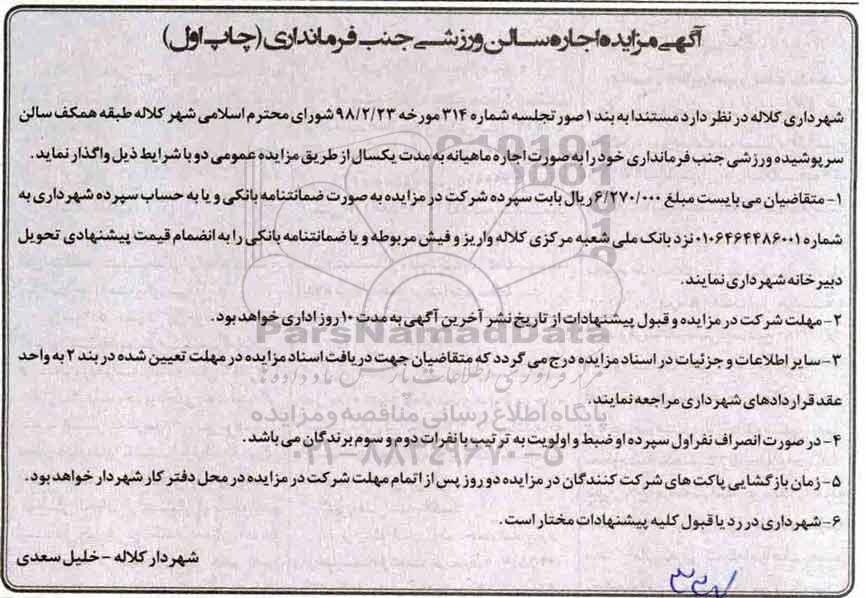 آگهی مزایده اجاره سالن ورزشی جنب فرمانداری (چاپ اول)
شهرداری کلاله در نظر دارد مستندا به بند ۱ صورتجلسه شماره ۳۱۴ مورخه ۹۸/۲/۲۳ شورای محترم اسلامی شهر کلاله طبقه همکف سالن
سرپوشیده ورزشی جنب فرمانداری خود را به صورت اجاره ماهیانه به مدت یکسال از طریق مزایده عمومی دو با شرایط ذیل واگذار نماید.
۱- متقاضیان می بایست مبلغ ۶/۲۷۰/۰۰۰ ریال بابت سپرده شرکت در مزایده به صورت ضمانتنامه بانکی و یا به حساب سپرده شهرداری به
شماره ۰۱۰۶۴۶۴۴۸۶۰۰۱ نزد بانک ملی شعبه مرکزی کلاله واریز و فیش مربوطه و یا ضمانتنامه بانکی را به انضمام قیمت پیشنهادی تحویل
دبیرخانه شهرداری نمایند.
۲- مهلت شرکت در مزایده و قبول پیشنهادات از تاریخ نشر آخرین آگهی به مدت ۱۰ روز اداری خواهد بود.
ParsNamadData
۳- سایر اطلاعات و جزئیات در اسناد مزایده درج می گردد که متقاضیان جهت دریافت اسناد مزایده در مهلت تعیین شده در بند ۲ به واحد
عقد قراردادهای شهرداری مراجعه نمایند.
پایگاه اطلاع رسانی مناقصه و مزایده
۴- در صورت انصراف نفر اول سپرده او ضبط و اولویت به ترتیب با نفرات دوم و سوم برندگان می باشد.
۰۲۱-۸۸۳۴۹۶۷۰-۵
۵- زمان بازگشایی پاکت های شرکت کنندگان در مزایده دو روز پس از اتمام مهلت شرکت در مزایده در محل دفتر کار شهردار خواهد بود.
۶- شهرداری در رد یا قبول کلیه پیشنهادات مختار است.
شهردار کلاله - خلیل سعدی